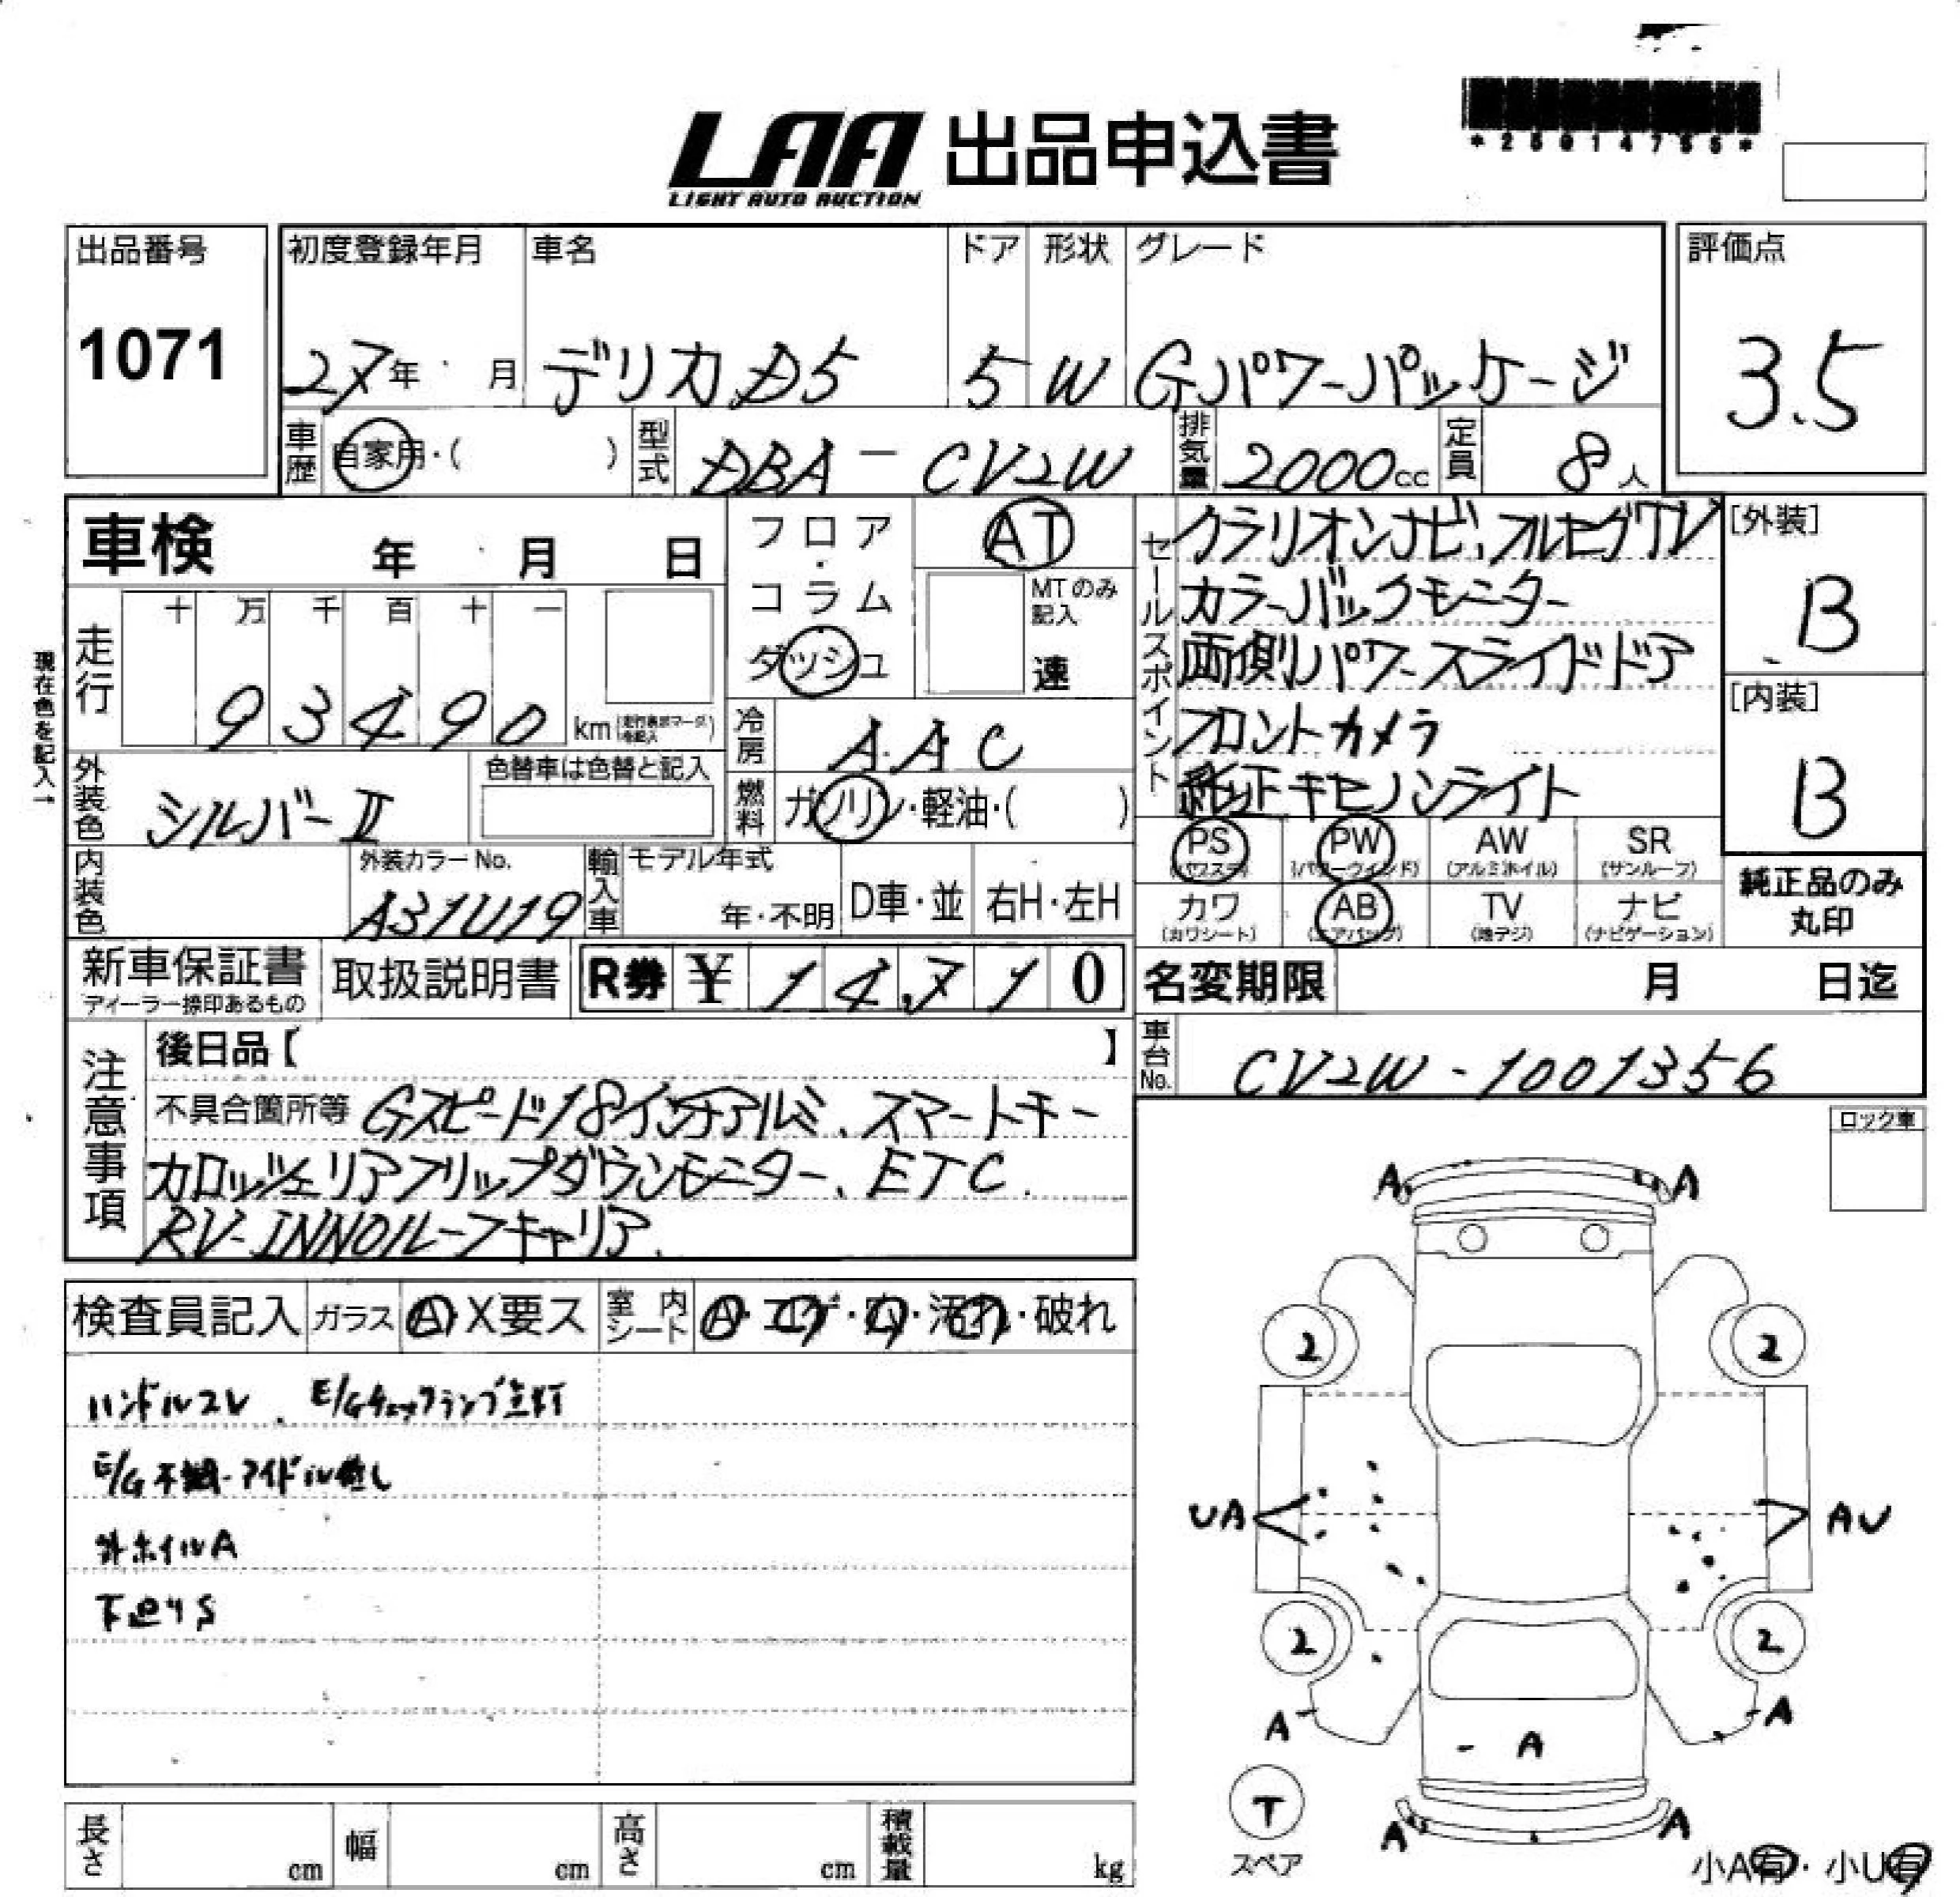 LAA 出品申込書
LIGHT AUTO AUCTION
*25014755*
出品番号
1071
初度登録年月
27年 月
車名
デリカD5
ドア
5
形状
W
グレード
Gパワーパッケージ
評価点
3.5
車歴 自家用・( )
型式 DBA-CV2W
排気量 2000cc
定員 8人
車検 年 月 日
フロア・コラム
ダッシュ
AT
MTのみ記入
速
セールスポイント
クラリオンナビ、フルセグTV
カラーバックモニター
両側パワースライドドア
フロントカメラ
純正キセノンライト
[外装]
B
[内装]
B
現在色を記入→
走行
十 万 千 百 十 一
93490 km
冷房 AAC
燃料 ガソリン・軽油・( )
外装色 シルバーII
色替車は色替と記入
内装色
外装カラーNo.
A31U19
輸入車
モデル年式
年・不明
D車・並
右H・左H
PS PW AW SR
(パワステ) (パワーウインド) (アルミホイル) (サンルーフ)
カワ AB TV ナビ
(カワシート) (エアバッグ) (地デジ) (ナビゲーション)
純正品のみ
丸印
新車保証書
ディーラー捺印あるもの
取扱説明書
R券 ¥ 14,710
名変期限 月 日迄
車台No. CV2W-1001356
注意事項
後日品【 】
不具合箇所等 Gスピード18インチアルミ、スマートキー
カロッツェリアフリップダウンモニター、ETC
RV-INNOルーフキャリア
ロック車
検査員記入 ガラス A・X要ス 室内シート A・コゲ・穴・汚れ・破れ
ハンドルスレ、E/Gチェックランプ点灯
E/G不調-アイドル無し
外ホイルA
下廻りS
A A
2 2
UA AU
2 2
A A
A
T
スペア
A A
小A有・小U有
長さ cm
幅 cm
高さ cm
積載量 kg